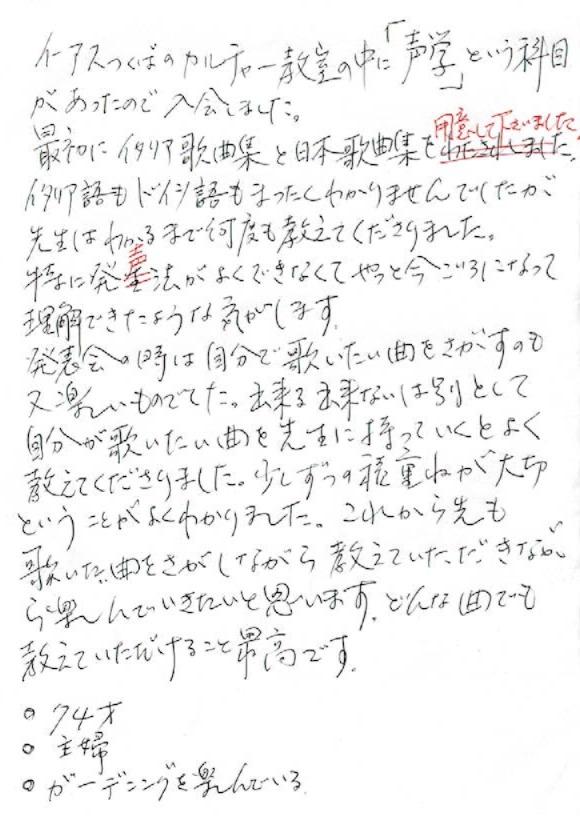 イーアスつくばのカルチャー教室の中に「声学」という科目
があったので入会しました。
用意して下さいました
最初にイタリア歌曲集と日本歌曲集をわたされました。
イタリア語もドイツ語もまったくわかりませんでしたが
先生はわかるまで何度も教えてくださりました。
声
特に発生法がよくできなくてやっと今ごろになって
理解できたような気がします。
発表会の時は自分で歌いたい曲をさがすのも
又楽しいものでした。出来る出来ないは別として
自分が歌いたい曲を先生に持っていくとよく
教えてくださりました。少しずつの積重ねが大切
ということがよくわかりました。これから先も
歌いたい曲をさがしながら教えていただきなが
ら楽んでいきたいと思います。どんな曲でも
教えていただけること最高です。
○ 74才
○ 主婦
○ ガーデニングを楽んでいる。